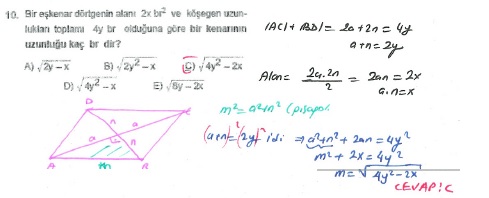 10. Bir eşkenar dörtgenin alanı 2x br² ve köşegen uzun-
lukları toplamı 4y br olduğuna göre bir kenarının
uzunluğu kaç br dir?
A) √2y – x B) √2y² – x C) √4y² – 2x
D) √4y² – x E) √8y – 2x
|AC| + |BD| = 2a + 2n = 4y
a + n = 2y
Alan = 2a.2n / 2 = 2an = 2x
a.n = x
m² = a² + n² (pisagor)
(a+n)² = (2y)² idi ⇒ a² + n² + 2an = 4y²
m² + 2x = 4y²
m = √4y² – 2x
CEVAP: C
D
a n
n a
A m B